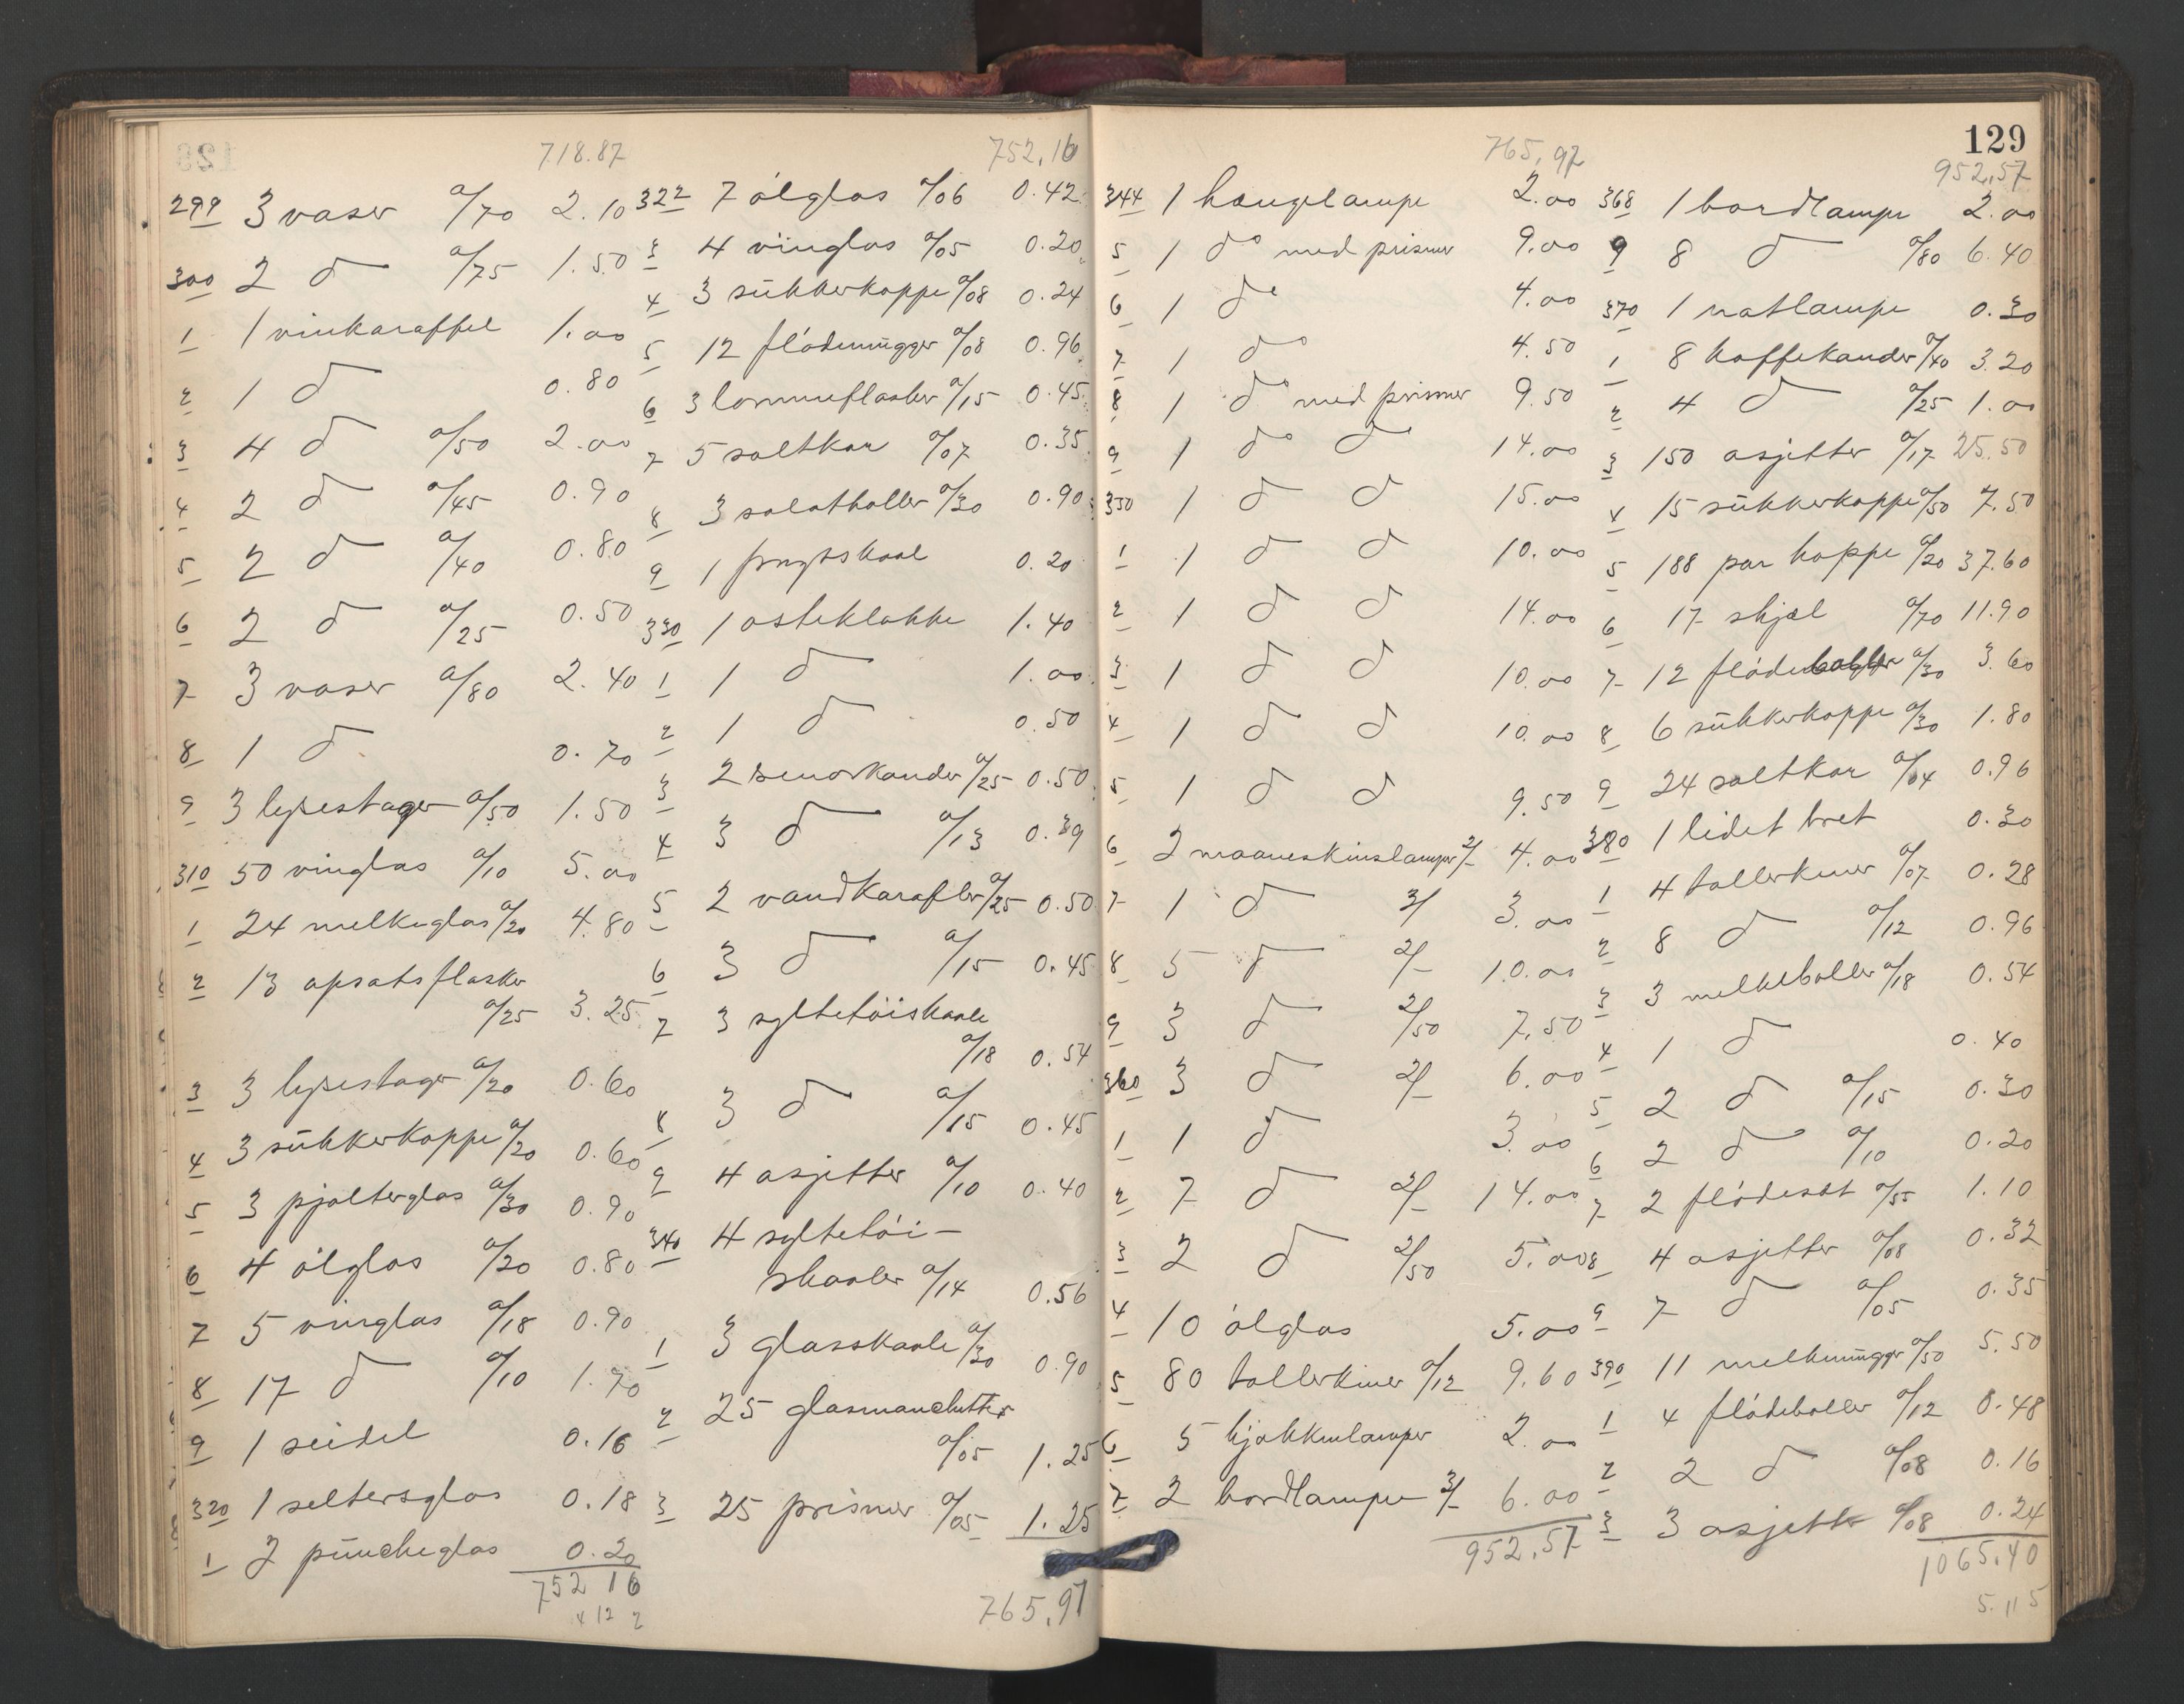 718.87
299 3 vaser a/70 2.10
300 2 do a/75 1.50
1 1 vinkaraffel 1.00
2 1 do 0.80
3 4 do a/50 2.00
4 2 do a/45 0.90
5 2 do a/40 0.80
6 2 do a/25 0.50
7 3 vaser a/80 2.40
8 1 do 0.70
9 3 lysestager a/50 1.50
310 50 vinglas a/10 5.00
1 24 melkeglas a/20 4.80
2 13 opsatsflasker
a/25 3.25
3 3 lysestager a/20 0.60
4 3 sükkerkoppe a/20 0.60
5 3 pjolterglas a/30 0.90
6 4 ölglas a/20 0.80
7 5 vinglas a/18 0.90
8 17 do a/10 1.70
9 1 seidel 0.16
320 1 seltersglas 0.18
1 2 püncheglas 0.20
752 16
752,16
322 7 ölglas a/06 0.42
3 4 vinglas a/05 0.20
4 3 sükkerkoppe a/08 0.24
5 12 flödemügger a/08 0.96
6 3 lommeflasker a/15 0.45
7 5 saltkar a/07 0.35
8 3 salatboller a/30 0.90
9 1 frugtskaal 0.20
330 1 osteklokke 1.40
1 1 do 1.00
2 1 do 0.50
3 2 senopkander a/25 0.50
4 3 do a/13 0.39
5 2 vandkarafler a/25 0.50
6 3 do a/15 0.45
7 3 syltetöiskaale
a/18 0.54
8 3 do a/15 0.45
9 4 asjetter a/10 0.40
340 4 syltetöi-
skaaler a/14 0.56
1 3 glasskaale a/30 0.90
2 25 glasmanchetter
a/05 1.25
3 25 prismer a/05 1.25
765,97
765,97
344 1 hængelampe 2.00
5 1 do med prismer 9.00
6 1 do 4.00
7 1 do 4.50
8 1 do med prismer 9.50
9 1 do do 14.00
350 1 do do 15.00
1 1 do do 10.00
2 1 do do 14.00
3 1 do do 10.00
4 1 do do 10.00
5 1 do do 9.50
6 2 maaneskinslamper 2/- 4.00
7 1 do 3/ 3.00
8 5 do 2/- 10.00
9 3 do 2/50 7.50
360 3 do 2/- 6.00
1 1 do 3.00
2 7 do 2/- 14.00
3 2 do 2/50 5.00
4 10 ölglas 5.00
5 80 tallerkiner a/12 9.60
6 5 kjøkkenlamper 2.00
7 2 bordlamper 3/- 6.00
952,57
129
952,57
368 1 bordlampe 2.00
9 8 do a/80 6.40
370 1 natlampe 0.30
1 8 kaffekander a/40 3.20
2 4 do a/25 1.00
3 150 asjetter a/17 25.50
4 15 sükkerkoppe a/50 7.50
5 188 par koppe a/20 37.60
6 17 skjæl a/70 11.90
7 12 flödeboller a/30 3.60
8 6 sükkerkoppe a/30 1.80
9 24 saltkar a/04 0.96
380 1 lidet bret 0.30
1 4 tallerkener a/07 0.28
2 8 do a/12 0.96
3 3 melkeboller a/18 0.54
4 1 do 0.40
5 2 do a/15 0.30
6 2 do a/10 0.20
7 2 flödesæt a/55 1.10
8 4 asjetter a/08 0.32
9 7 do a/05 0.35
390 11 melkemügger a/50 5.50
1 4 flödeboller a/12 0.48
2 2 do a/08 0.16
3 3 asjetter a/08 0.24
1065,40